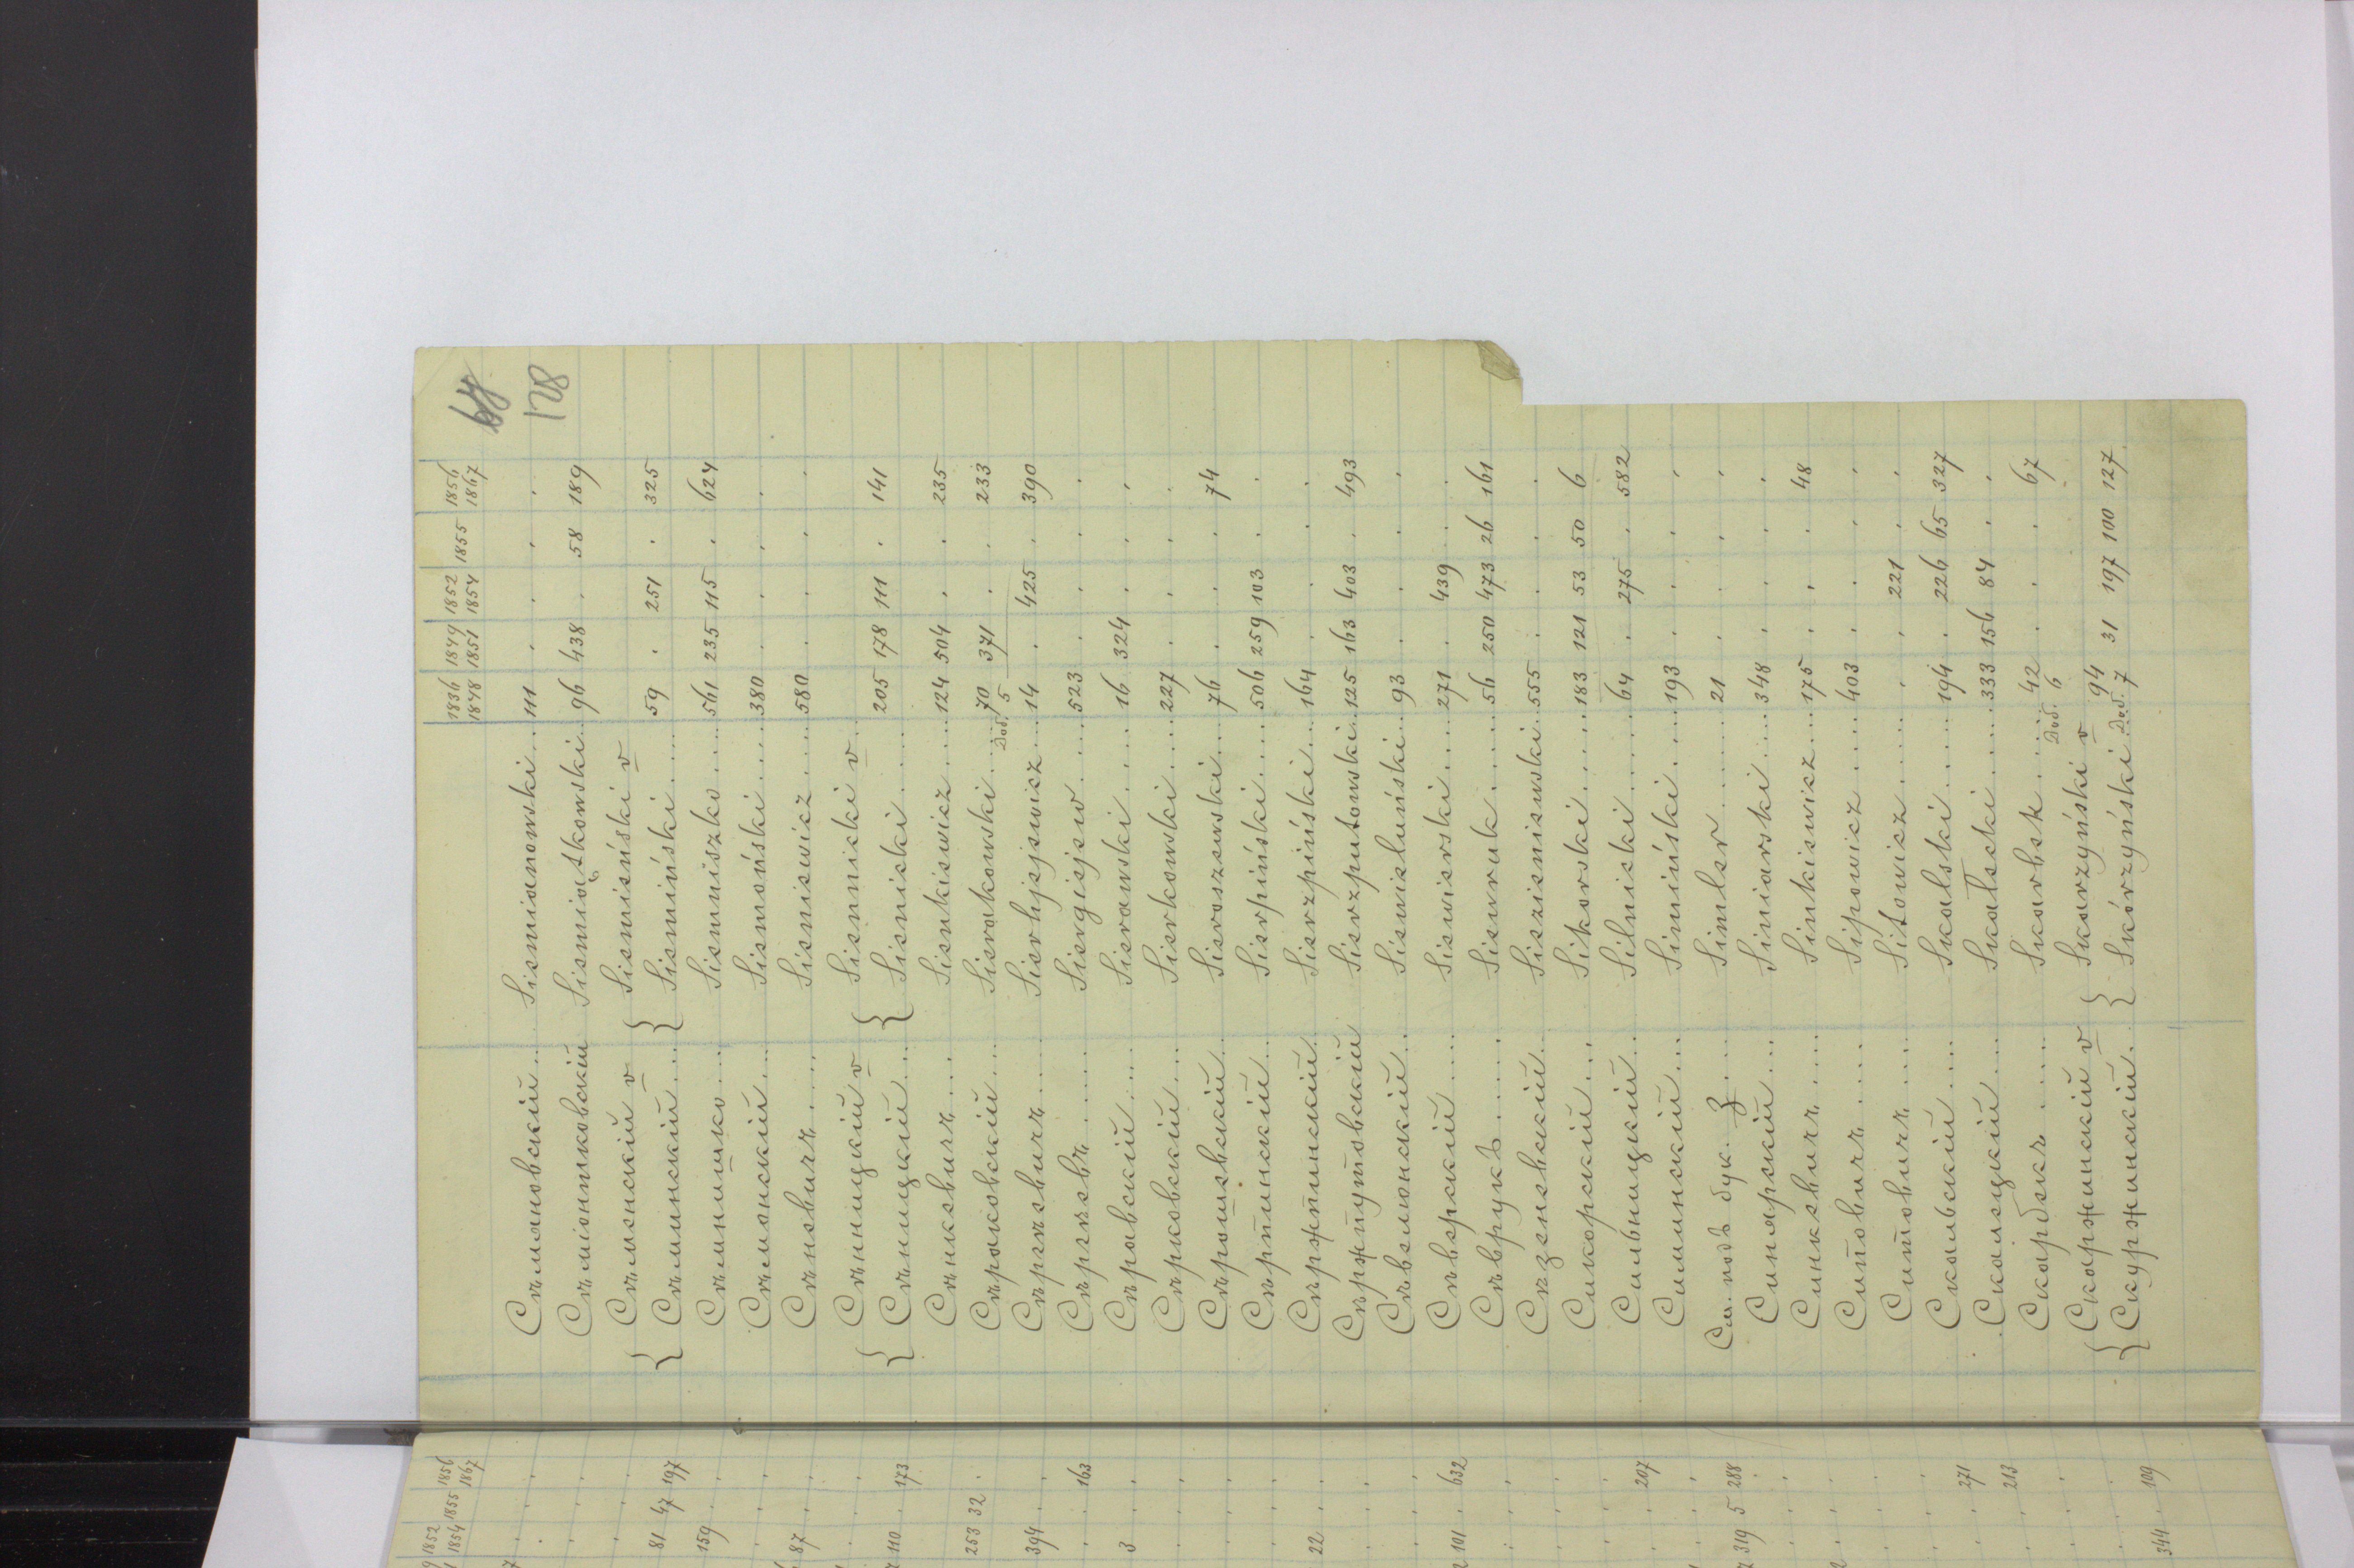 64
128
1836 1848 | 1849 1851 | 1852 1854 | 1855 | 1856 1867
Сѣмяновскій... Siemianowski... 111 . . . .
Сѣміонтковскій Siemiątkowski... 96 438 . 58 189
{ Сѣменскій v } Siemieński v
{ Сѣминскій... } Siemiński.... 59 . 251 . 325
Сѣмнишко... Siemniszko.... 561 235 115 . 624
Сѣмонскій... Siemoński.... 380 . . . .
Сѣневичъ.... Sieniewicz.... 580 . . . .
{ Сѣнницкій v } Siennicki v
{ Сѣницкій... } Sienicki..... 205 178 111 . 141
Сѣнкевичъ... Sienkiewicz... 124 504 . . 235
Сѣраковскій... Sierakowski.... 70 371 . . 233
Dod. 5
Сѣргѣевичъ.... Sierhjejewicz... 14 . 425 . 390
Сѣргѣевъ...... Siergiejew.... 523 . . . .
Сѣравскій.... Sierawski.... 16 324 . . .
Сѣрковскій... Sierkowski.... 227 . . . .
Сѣрошевскій.. Sieroszewski... 76 . . . 74
Сѣрпинскій... Sierpiński.... 506 259 103 . .
Сѣржпинскій.. Sierzpiński... 164 . . . .
Сѣржпутовскій Sierzputowski... 125 163 403 . 493
Сѣвелюнскій.. Siewieluński... 93 . . . .
Сѣверскій.... Siewierski.... 271 . 439 . .
Сѣврукъ...... Siewruk..... 56 250 473 26 161
Сѣзеневскій.. Siezieniewski... 555 . . . .
Сикорскій.... Sikorski..... 183 121 53 50 6
Сильницкій... Silnicki..... 64 . 275 . 582
Симинскій.... Simiński..... 193 . . . .
См. подъ бук. З.... Simler...... 21 . . . .
Синярскій.... Siniarski.... 348 . . . .
Синкевичъ.... Sinkiewicz... 175 . . . 48
Сиповичъ..... Sipowicz..... 403 . . . .
Ситовичъ..... Sitowicz..... . . 221 . .
Скальскій.... Skalski..... 194 . 226 65 327
Скалецкій.... Skalecki..... 333 156 84 . .
Скарбекъ..... Skarbek..... 42 . . . 67
Dod. 6
{ Скаржинскій v } Skarzyński v 94
{ Скуржинскій. } Skórzyński Dod. 7 31 197 100 127
1852 1854 | 1855 | 1856 1867
81 47 197
159 . .
87 . .
110 . 173
253 32 .
394 . .
. . 163
3 . .
22 . .
101 . 632
. . 207
319 5 288
. . 271
. . 213
344 . 109